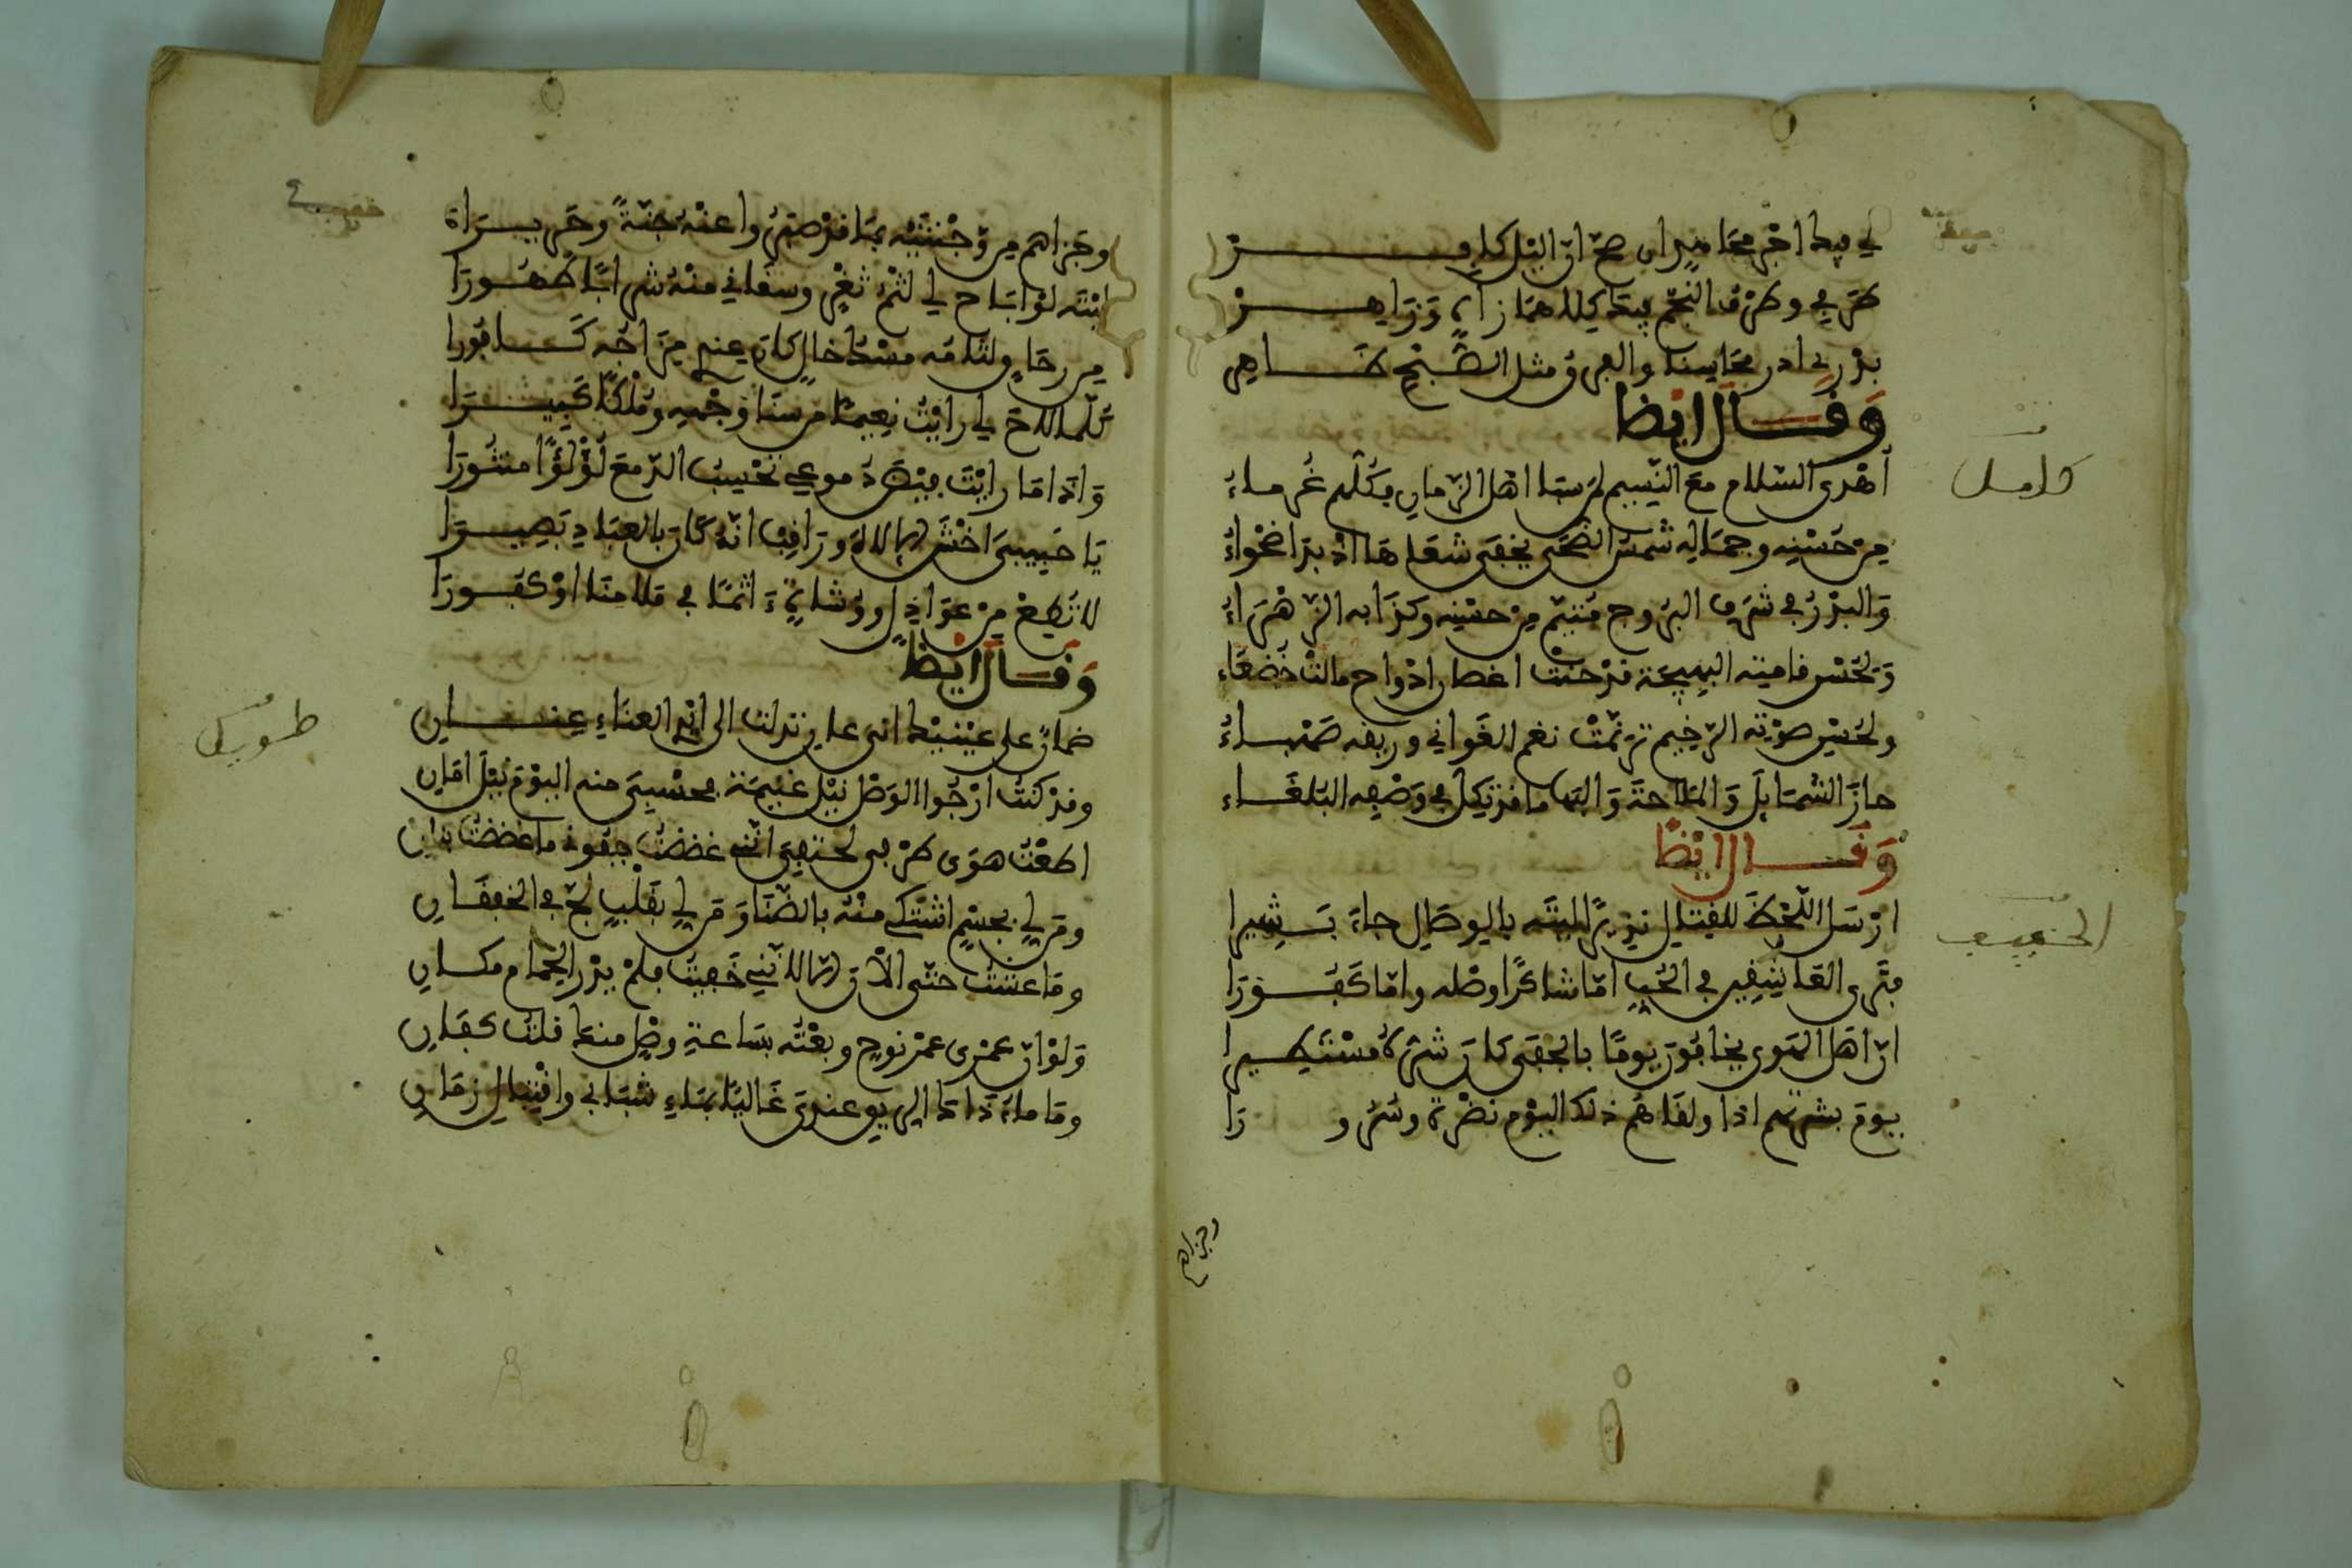 لي فيك اجر مجاهد ان صح ان الليل كافر
طرفي وطرف النجم فيك كلاهما ساه وساهر
بدري ادر محاسنا والفرق مثل الصبح ظاهر
وقال ايضا
كامل
أهدى السلام مع النسيم لمن سبا اهل الزمان فكلهم غرماء
من حسنه وجماله شمس الضحى يخفى شعاعها اذ بدا ضواء
والبدر في شرف البروج متيم من حسنه وكذا به الزهراء
ولحسن قامته البهيجة قد حنت اغصان ادواح مالت خضعاء
ولحسن صوته الرخيم ترنمت نغم الغواني وريقه صهباء
حاز الشمايل والملاحة والبها ما قد يكل في وصفه البلغاء
وقال ايضا
الخفيف
ارسل اللحظ للقتيل نذيرا ليته بالوصال جاء بشيرا
فترى العاشقين في الحب اما شاكرا وصله واما كفورا
ان اهل الهوى يخافون يوما بالجفى كان شره مستطيرا
يوم بشرهم اذا ولقاهم ذلك اليوم نضرة وسرورا
وجزاهم
خفيف
وجزاهم من وجنتيه بما قد صبروا عنه جنة وحريرا
ليته لو اباح لي لثم ثغر وسقاني منه شرابا طهورا
من رحاق ختامه مسك خال كان عندي مزاجه كافورا
كلما لاح لي رايت نعيما من سنا وجهه وملكا كبيرا
واذا ما رايت فيض دموعي تحسب الدمع لؤلؤا منثورا
يا حبيبي اخش الاله وراقب انه كان بالعباد بصيرا
لا تطع من عواذل ووشاة ءاثما في ملامنا او كفورا
وقال ايضا
طويل
ضمان على عينيك اني عان تدلت الى ايدي العناء عناني
وقد كنت ارجوا الوصل نيل غنيمة فحسبي منه اليوم نيل امان
اطعت هوى طرفي لحتفي انني غضضت جفوني ما غضضت بناني
ومن لي بجسم اشتكي منه بالضنا ومن لي بقلب لج في الخفقان
وما عشت حتى الآن الا لانني خفيت فلم يدر الحمام مكاني
ولو ان عمري عمر نوح وبعته بساعة وصل منك قلت كفاني
وما ماء ذاك الريق عندي غاليا بماء شبابي واقتبال زماني